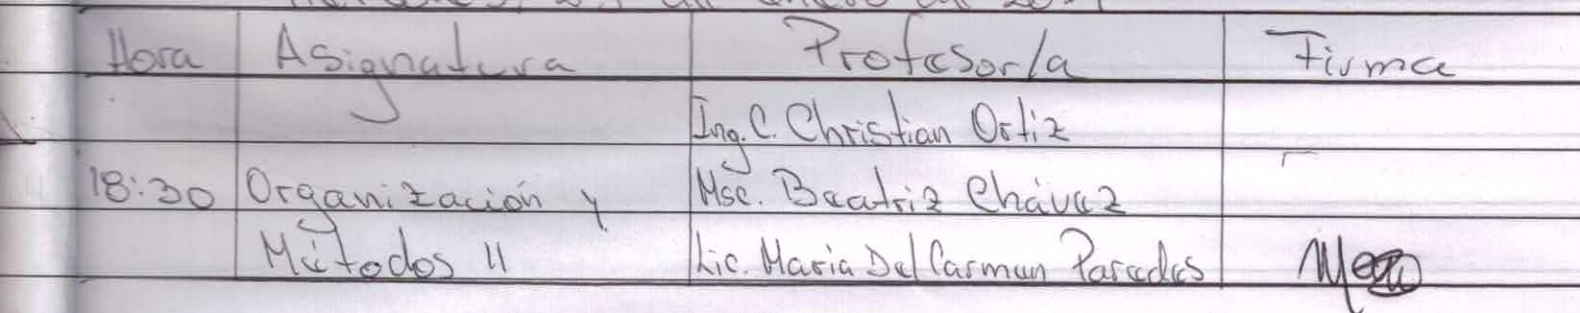 Hora Asignatura Profesor/a Firma
Ing. C. Christian Ortiz
18:30 Organización y Msc. Beatriz Chávez
Métodos II Lic. Maria Del Carmen Paredes